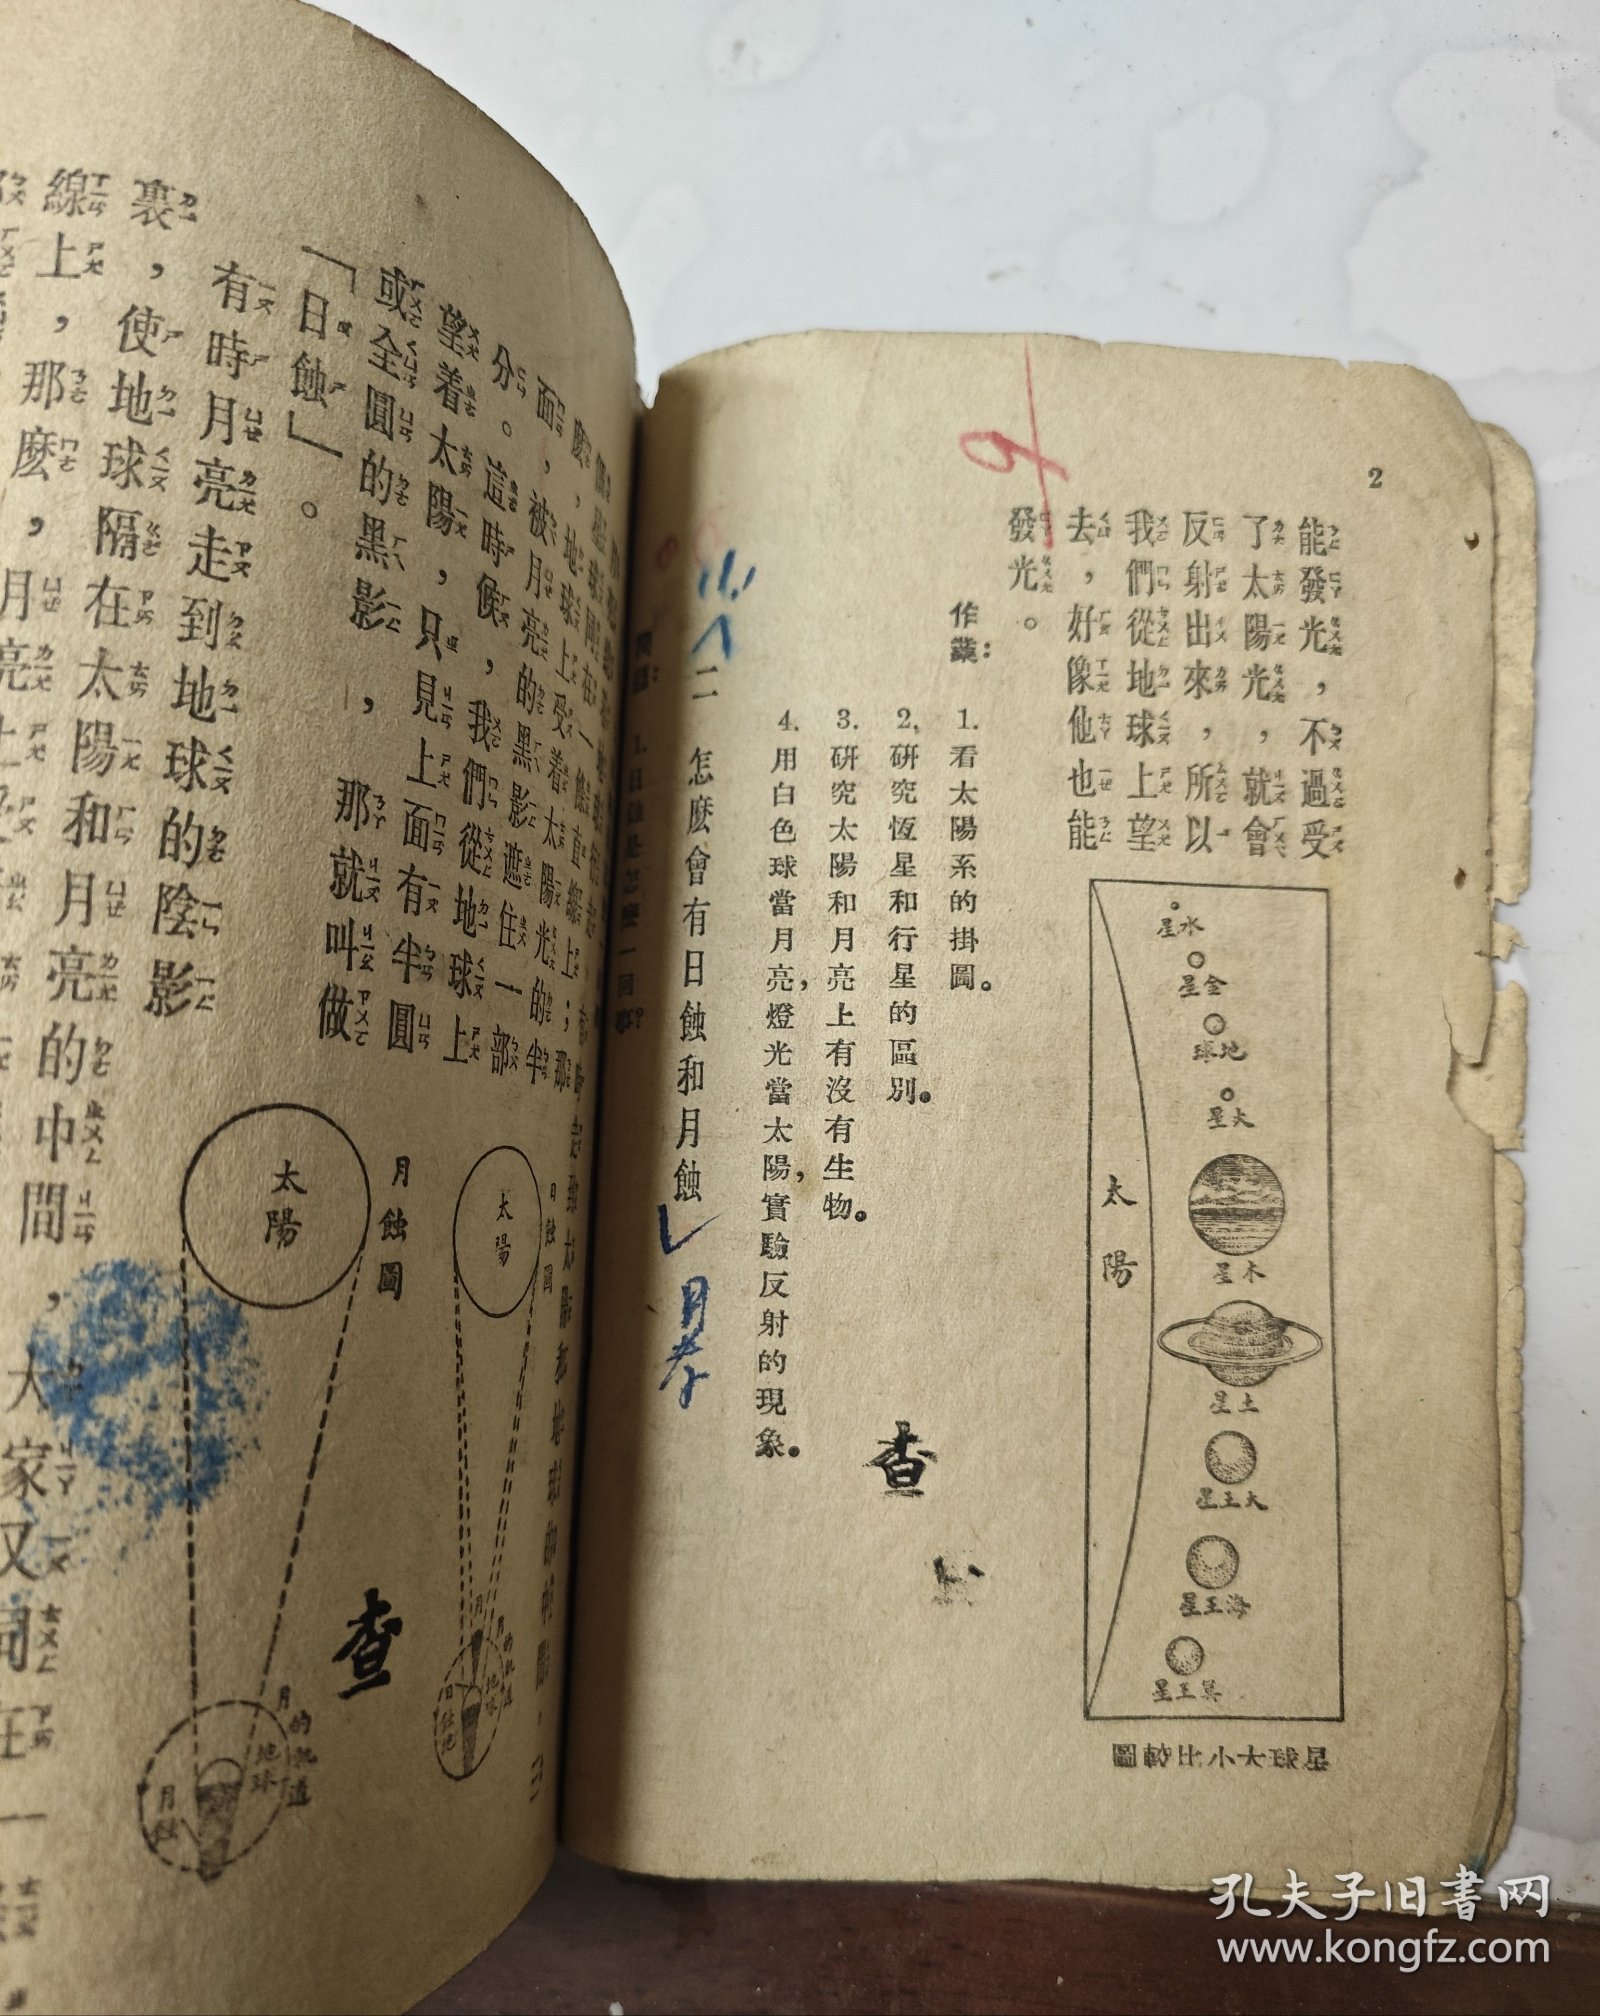 2
能發光，不過受
了太陽光，就會
反射出來，所以
我們從地球上望
去，好像他也能
發光。
水星
金星
地球
火星
木星
土星
天王星
海王星
冥王星
太陽
星球大小比較圖
作業：
1. 看太陽系的掛圖。
2. 研究恆星和行星的區別。
3. 研究太陽和月亮上有沒有生物。
4. 用白色球當月亮，燈光當太陽，實驗反射的現象。
查
二 怎麽會有日蝕和月蝕
月考
問題：
1. 日蝕是怎麽一回事？
麽，地球上受着太陽光的半
面，被月亮的黑影遮住一部
分。這時候，我們從地球上
望着太陽，只見上面有半圓
或全圓的黑影，那就叫做
「日蝕」。
日蝕圖
太陽
月
月的軌道
地球
日蝕地
有時月亮走到地球的陰影
裏，使地球隔在太陽和月亮的中間，
線上，那麽，月亮
大家又同在一
月蝕圖
太陽
月的軌道
地球
月蝕
查
孔夫子旧書网
www.kongfz.com